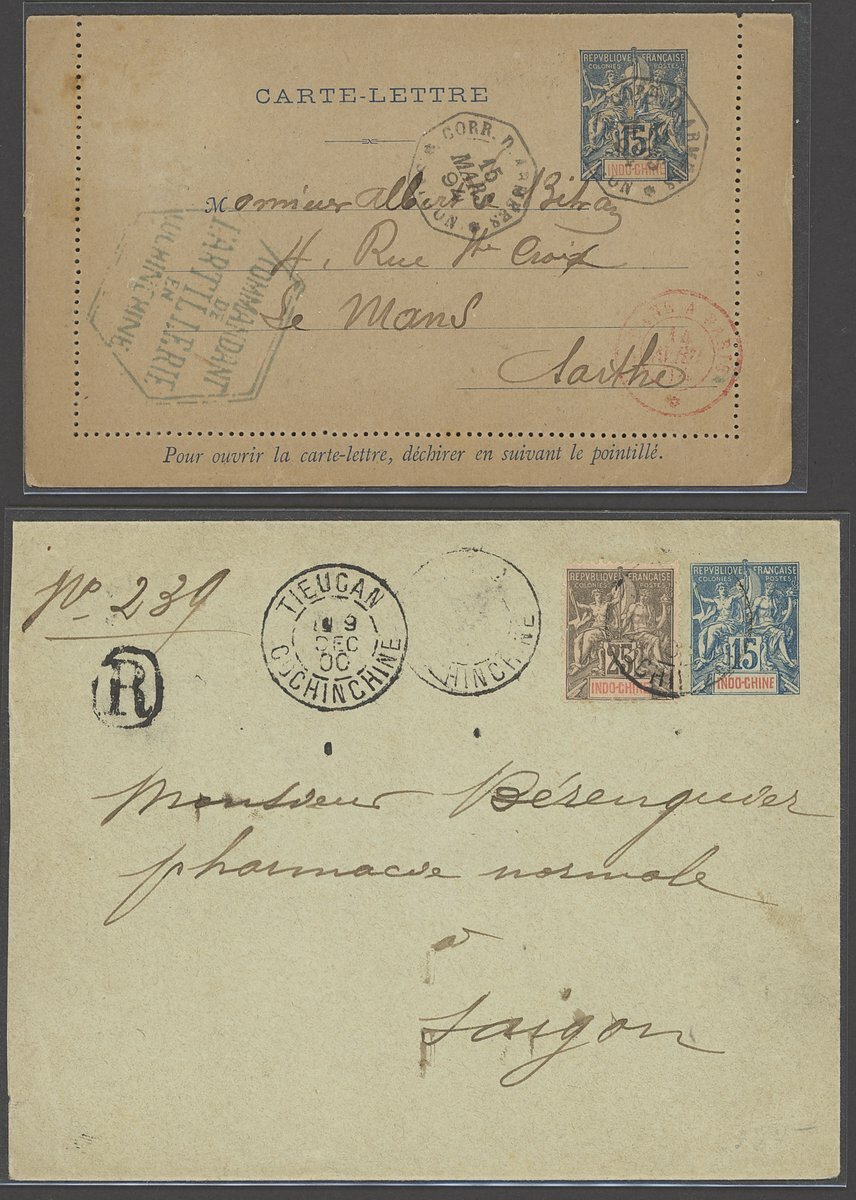 REPVBLIQUE FRANÇAISE
COLONIES POSTES
15
INDO-CHINE
CARTE-LETTRE
CORR. D. ARMÉES
15
MARS
94
Monsieur Albert
4, Rue Ste Croix
Le Mans
Sarthe
COMMANDANT
DE
L'ARTILLERIE
EN
COCHINCHINE
14
Pour ouvrir la carte-lettre, déchirer en suivant le pointillé.
No 239
R
TIEUCAN
9
DEC
00
COCHINCHINE
HINCHINE
REPVBLIQUE FRANÇAISE
COLONIES POSTES
25
INDO-CHINE
REPVBLIQUE FRANÇAISE
COLONIES POSTES
15
INDO-CHINE
Monsieur Bérenguier
pharmacie normale
à
Saigon